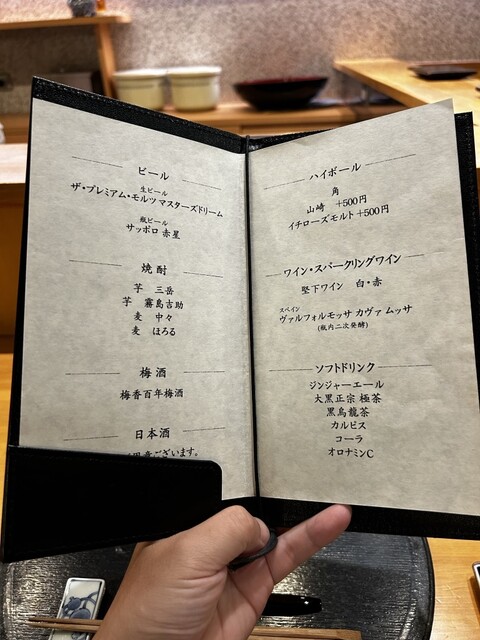 ビール
生ビール
ザ・プレミアム・モルツ マスターズドリーム
瓶ビール
サッポロ 赤星
焼酎
芋 三岳
芋 霧島吉助
麦 中々
麦 ほろる
梅酒
梅香百年梅酒
日本酒
ございます。
ハイボール
角
山崎 +500円
イチローズモルト +500円
ワイン・スパークリングワイン
堅下ワイン 白・赤
スペイン
ヴァルフォルモッサ カヴァ ムッサ
(瓶内二次発酵)
ソフトドリンク
ジンジャーエール
大黒正宗 極茶
黒烏龍茶
カルピス
コーラ
オロナミンC